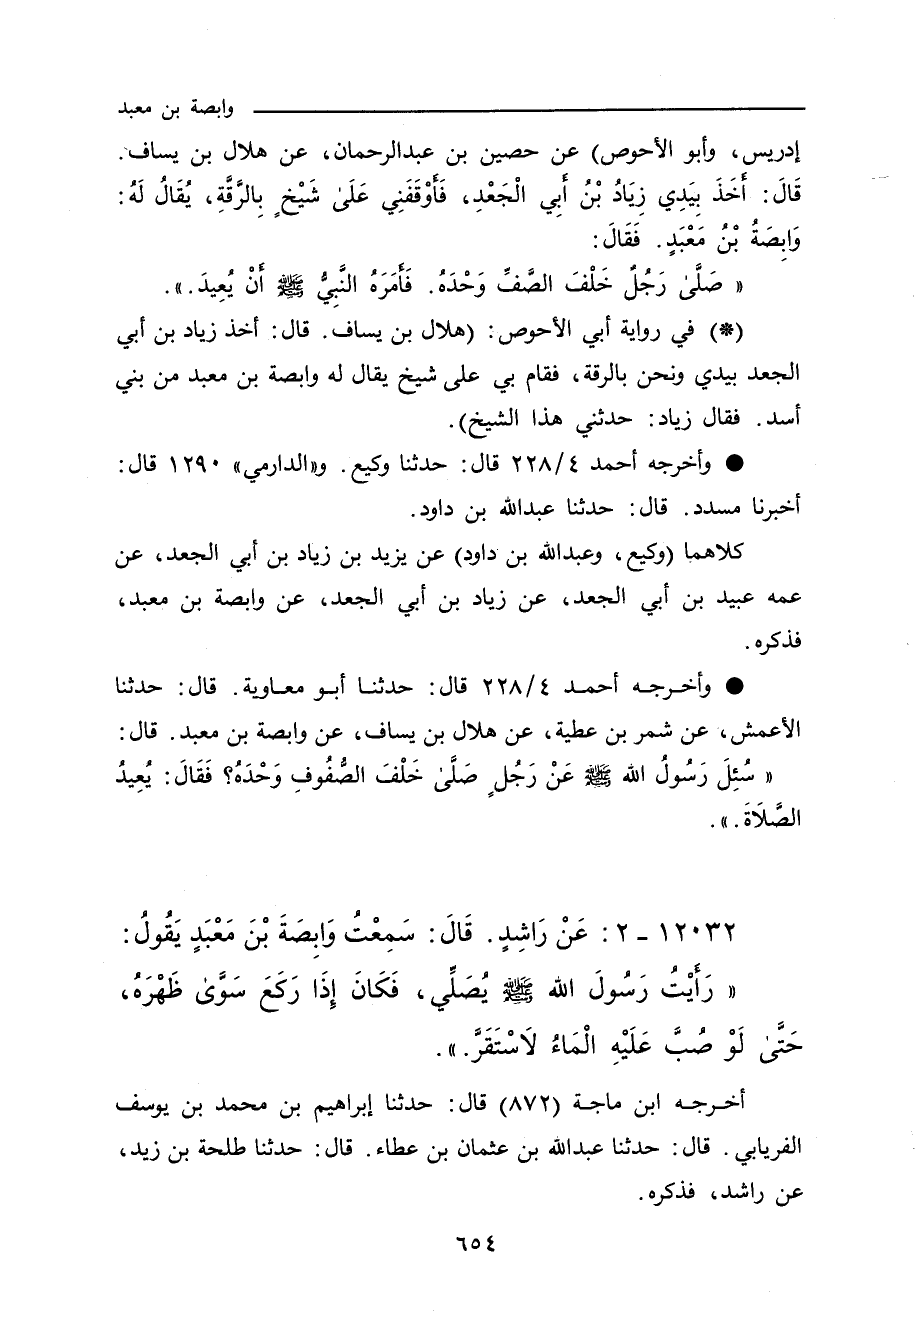 وابصة بن معبد
إدريس، وأبو الأحوص) عن حصين بن عبدالرحمان، عن هلال بن يساف.
قَالَ: أَخَذَ بِيَدِي زِيَادُ بْنُ أَبِي الْجَعْدِ، فَأَوْقَفَنِي عَلَىٰ شَيْخٍ بِالرَّقَّةِ، يُقَالُ لَهُ:
وَابِصَةُ بْنُ مَعْبَدٍ. فَقَالَ:
« صَلَّىٰ رَجُلٌ خَلْفَ الصَّفِّ وَحْدَهُ. فَأَمَرَهُ النَّبِيُّ ﷺ أَنْ يُعِيدَ.».
(*) في رواية أبي الأحوص: (هلال بن يساف. قال: أخذ زياد بن أبي
الجعد بيدي ونحن بالرقة، فقام بي على شيخ يقال له وابصة بن معبد من بني
أسد. فقال زياد: حدثني هذا الشيخ).
● وأخرجه أحمد ٢٢٨/٤ قال: حدثنا وكيع. و«الدارمي» ١٢٩٠ قال:
أخبرنا مسدد. قال: حدثنا عبدالله بن داود.
كلاهما (وكيع، وعبدالله بن داود) عن يزيد بن زياد بن أبي الجعد، عن
عمه عبيد بن أبي الجعد، عن زياد بن أبي الجعد، عن وابصة بن معبد،
فذكره.
● وأخرجه أحمد ٢٢٨/٤ قال: حدثنا أبو معاوية. قال: حدثنا
الأعمش، عن شمر بن عطية، عن هلال بن يساف، عن وابصة بن معبد. قال:
« سُئِلَ رَسُولُ الله ﷺ عَنْ رَجُلٍ صَلَّىٰ خَلْفَ الصُّفُوفِ وَحْدَهُ؟ فَقَالَ: يُعِيدُ
الصَّلَاةَ.».
١٢٠٣٢ ـ ٢: عَنْ رَاشِدٍ. قَالَ: سَمِعْتُ وَابِصَةَ بْنَ مَعْبَدٍ يَقُولُ:
« رَأَيْتُ رَسُولَ الله ﷺ يُصَلِّي، فَكَانَ إِذَا رَكَعَ سَوَّىٰ ظَهْرَهُ،
حَتَّىٰ لَوْ صُبَّ عَلَيْهِ الْمَاءُ لَاسْتَقَرَّ.».
أخرجه ابن ماجة (٨٧٢) قال: حدثنا إبراهيم بن محمد بن يوسف
الفريابي. قال: حدثنا عبدالله بن عثمان بن عطاء. قال: حدثنا طلحة بن زيد،
عن راشد، فذكره.
٦٥٤